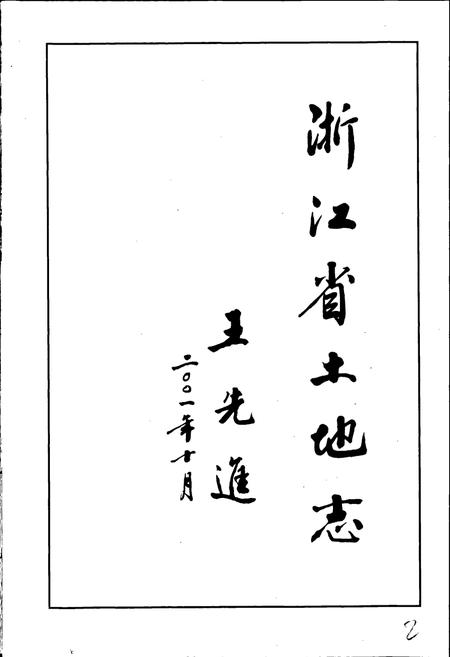 浙江省土地志
王先進
二〇〇一年十月
2